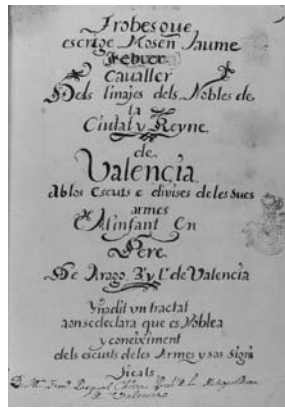 Trobes que
escrige Mosen Jaume
Febrer
Cavaller
Dels linajes dels Nobles de
la
Ciutat y Reyne
de
Valencia
ab los escuts e divises de les sues
armes
Al infant En
Pere
De Arago. R y l. de Valencia
Yñadit vn tractat
aon se declara que es Noblea
y coneiximent
dels escusts de les Armes y sos signi
ficats